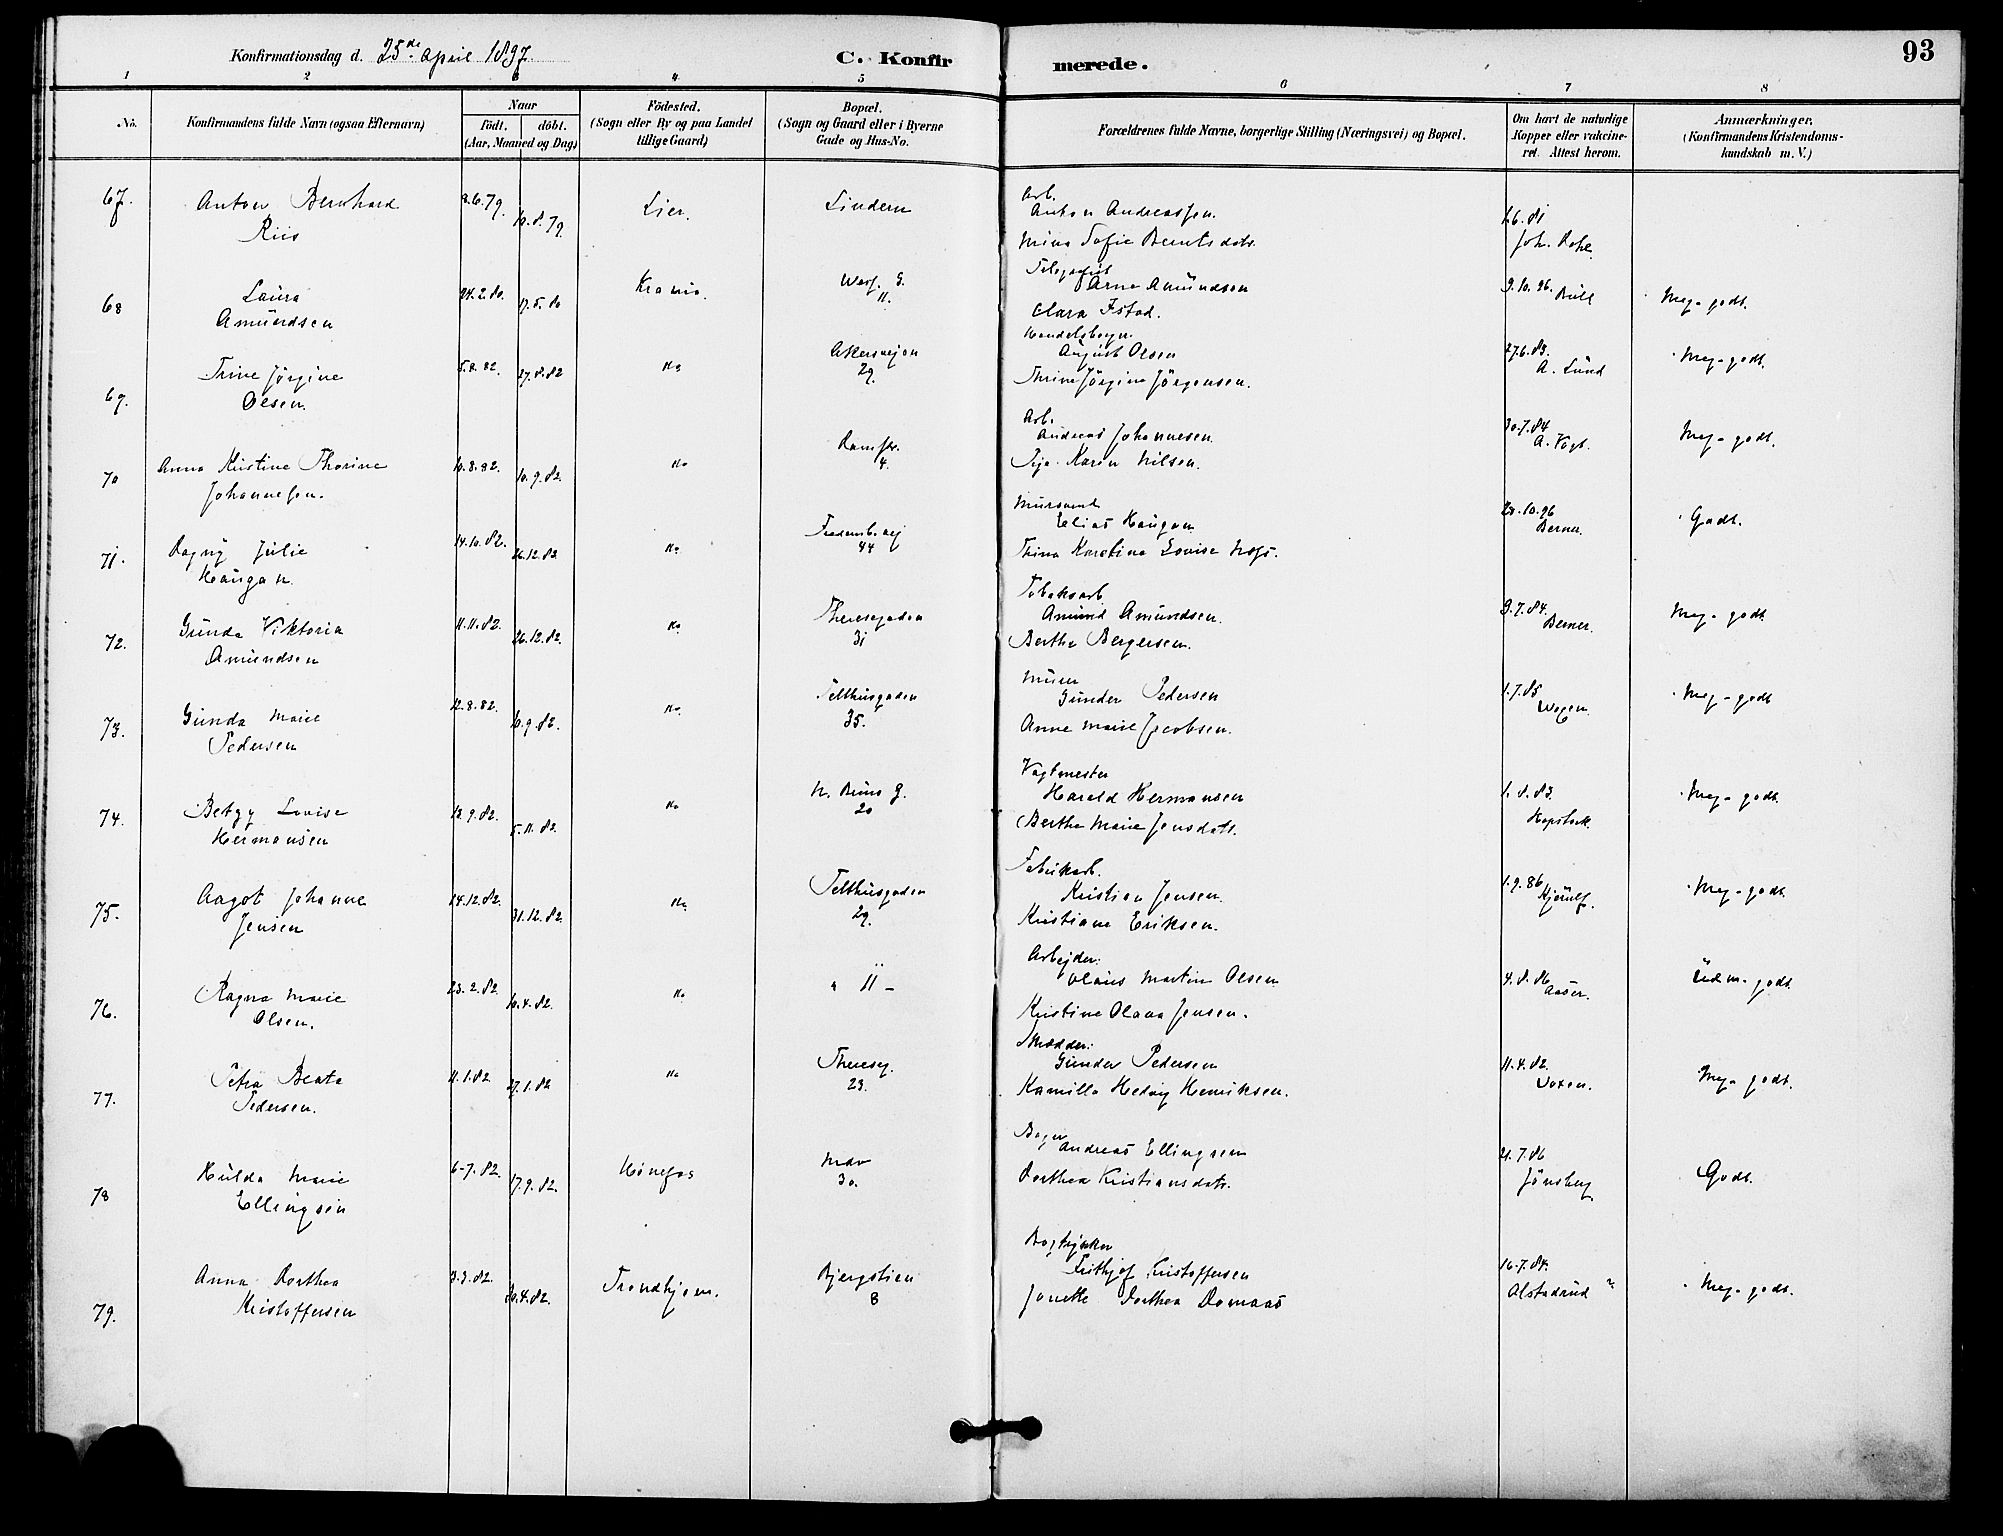 Konfirmationsdag d. 25de April 1897.
C. Konfirmerede.
93
1 2 3 4 5 6 7 8
No.
Konfirmandens fulde Navn (ogsaa Efternavn)
Naar
födt. döbt.
(Aar, Maaned og Dag)
Födested.
(Sogn eller By og paa Landet
tillige Gaard)
Bopæl.
(Sogn og Gaard eller i Byerne
Gade og Hus-No.
Forældrenes fulde Navne, borgerlige Stilling (Næringsvei) og Bopæl.
Om havt de naturlige
Kopper eller vakcine-
ret. Attest herom.
Anmærkninger,
(Konfirmandens Kristendoms-
kundskab m. V.)
67. Anton Bernhard
Riis
8.6.79. 10.8.79. Lier. Lindern
Arb.
Anton Andreassen.
Mina Sofie Berntsdatr.
68 Laura
Amundsen
24.2.80. 17.5.80 Krania. 11.
Telegrafist
Arne Amundsen
Clara Fstad.
9.10.96. Meg. godt.
69. Trine Jörgine
Olsen.
5.8.82. 27.8.82 Ka Akersvejen
29.
Handelsborger.
August Olsen
Thrine Jörgine Jörgensen.
27.6.83.
A. Lund
Meg. godt.
70 Anna Kristine Thorine
Johannesen.
10.8.82. 10.9.82. Ka
4.
Arb.
Andreas Johannesen.
Karen Nilsen.
30.7.84
A. Vogt.
Meg. godt.
71. Dagny Julie
Haugan.
14.10.82. 26.12.82. Ka
44
Elias Haugan
Trina Karolina Lovise
10.96
Berner.
Godt.
72. Gunda Viktoria
Amundsen
11.11.82. 26.12.82. Ka Theresegaden
31
Tobaksarb.
Amund Amundsen.
Bertha Bergersen.
9.7.84.
Berner.
Meg. godt.
73. Gunda Marie
Pedersen
12.8.82. 10.9.82. Ka Telthusgaden
35.
Murer
Gunder Pedersen
Anne Marie Jacobsen.
1.7.85
Meg. godt
74. Betzy Lovise
Hermansen
13.9.82. 5.11.82. Ka
20
Vagtmester
Harald Hermansen
Berthe Marie Jonsdatr.
1.8.83.
Kopstock.
Meg. godt.
75. Aagot Johanne
Jensen
14.12.82. 31.12.82. Ka Telthusgaden
29.
Fabrikarb.
Kristian Jensen.
Kristiane Eriksen.
1.9.86
Kjerulf.
Meg. godt.
76. Ragna Marie
Olsen.
23.2.82. 10.4.82. Ka " 11 -
Arbejder.
Olaus Martin Olsen
Kristine Olava Jensen.
4.8.86
Aaser.
Udm. godt.
77. Petra Beate
Pedersen.
11.1.82 27.1.82 Ka Thereseg.
23.
Skrædder.
Gunder Pedersen
Kamilla Hedvig Henriksen.
11.4.82.
Meg. godt.
78 Hulda Marie
Ellingsen
6-7.82. 17.9.82. Hönefos
30.
Bager
Andreas Ellingsen
Dorthea Kristiansdatr.
21.7.86
Jönsberg.
Godt.
79. Anna Dorthea
Kristoffersen
3.3.82. 10.4.82. Trondhjem. Bjergstien
8
Bogtrykker
Frithjof Kristoffersen
Jonette Dorthea Domaas
16.7.84.
Alstadsud
Meg. godt.